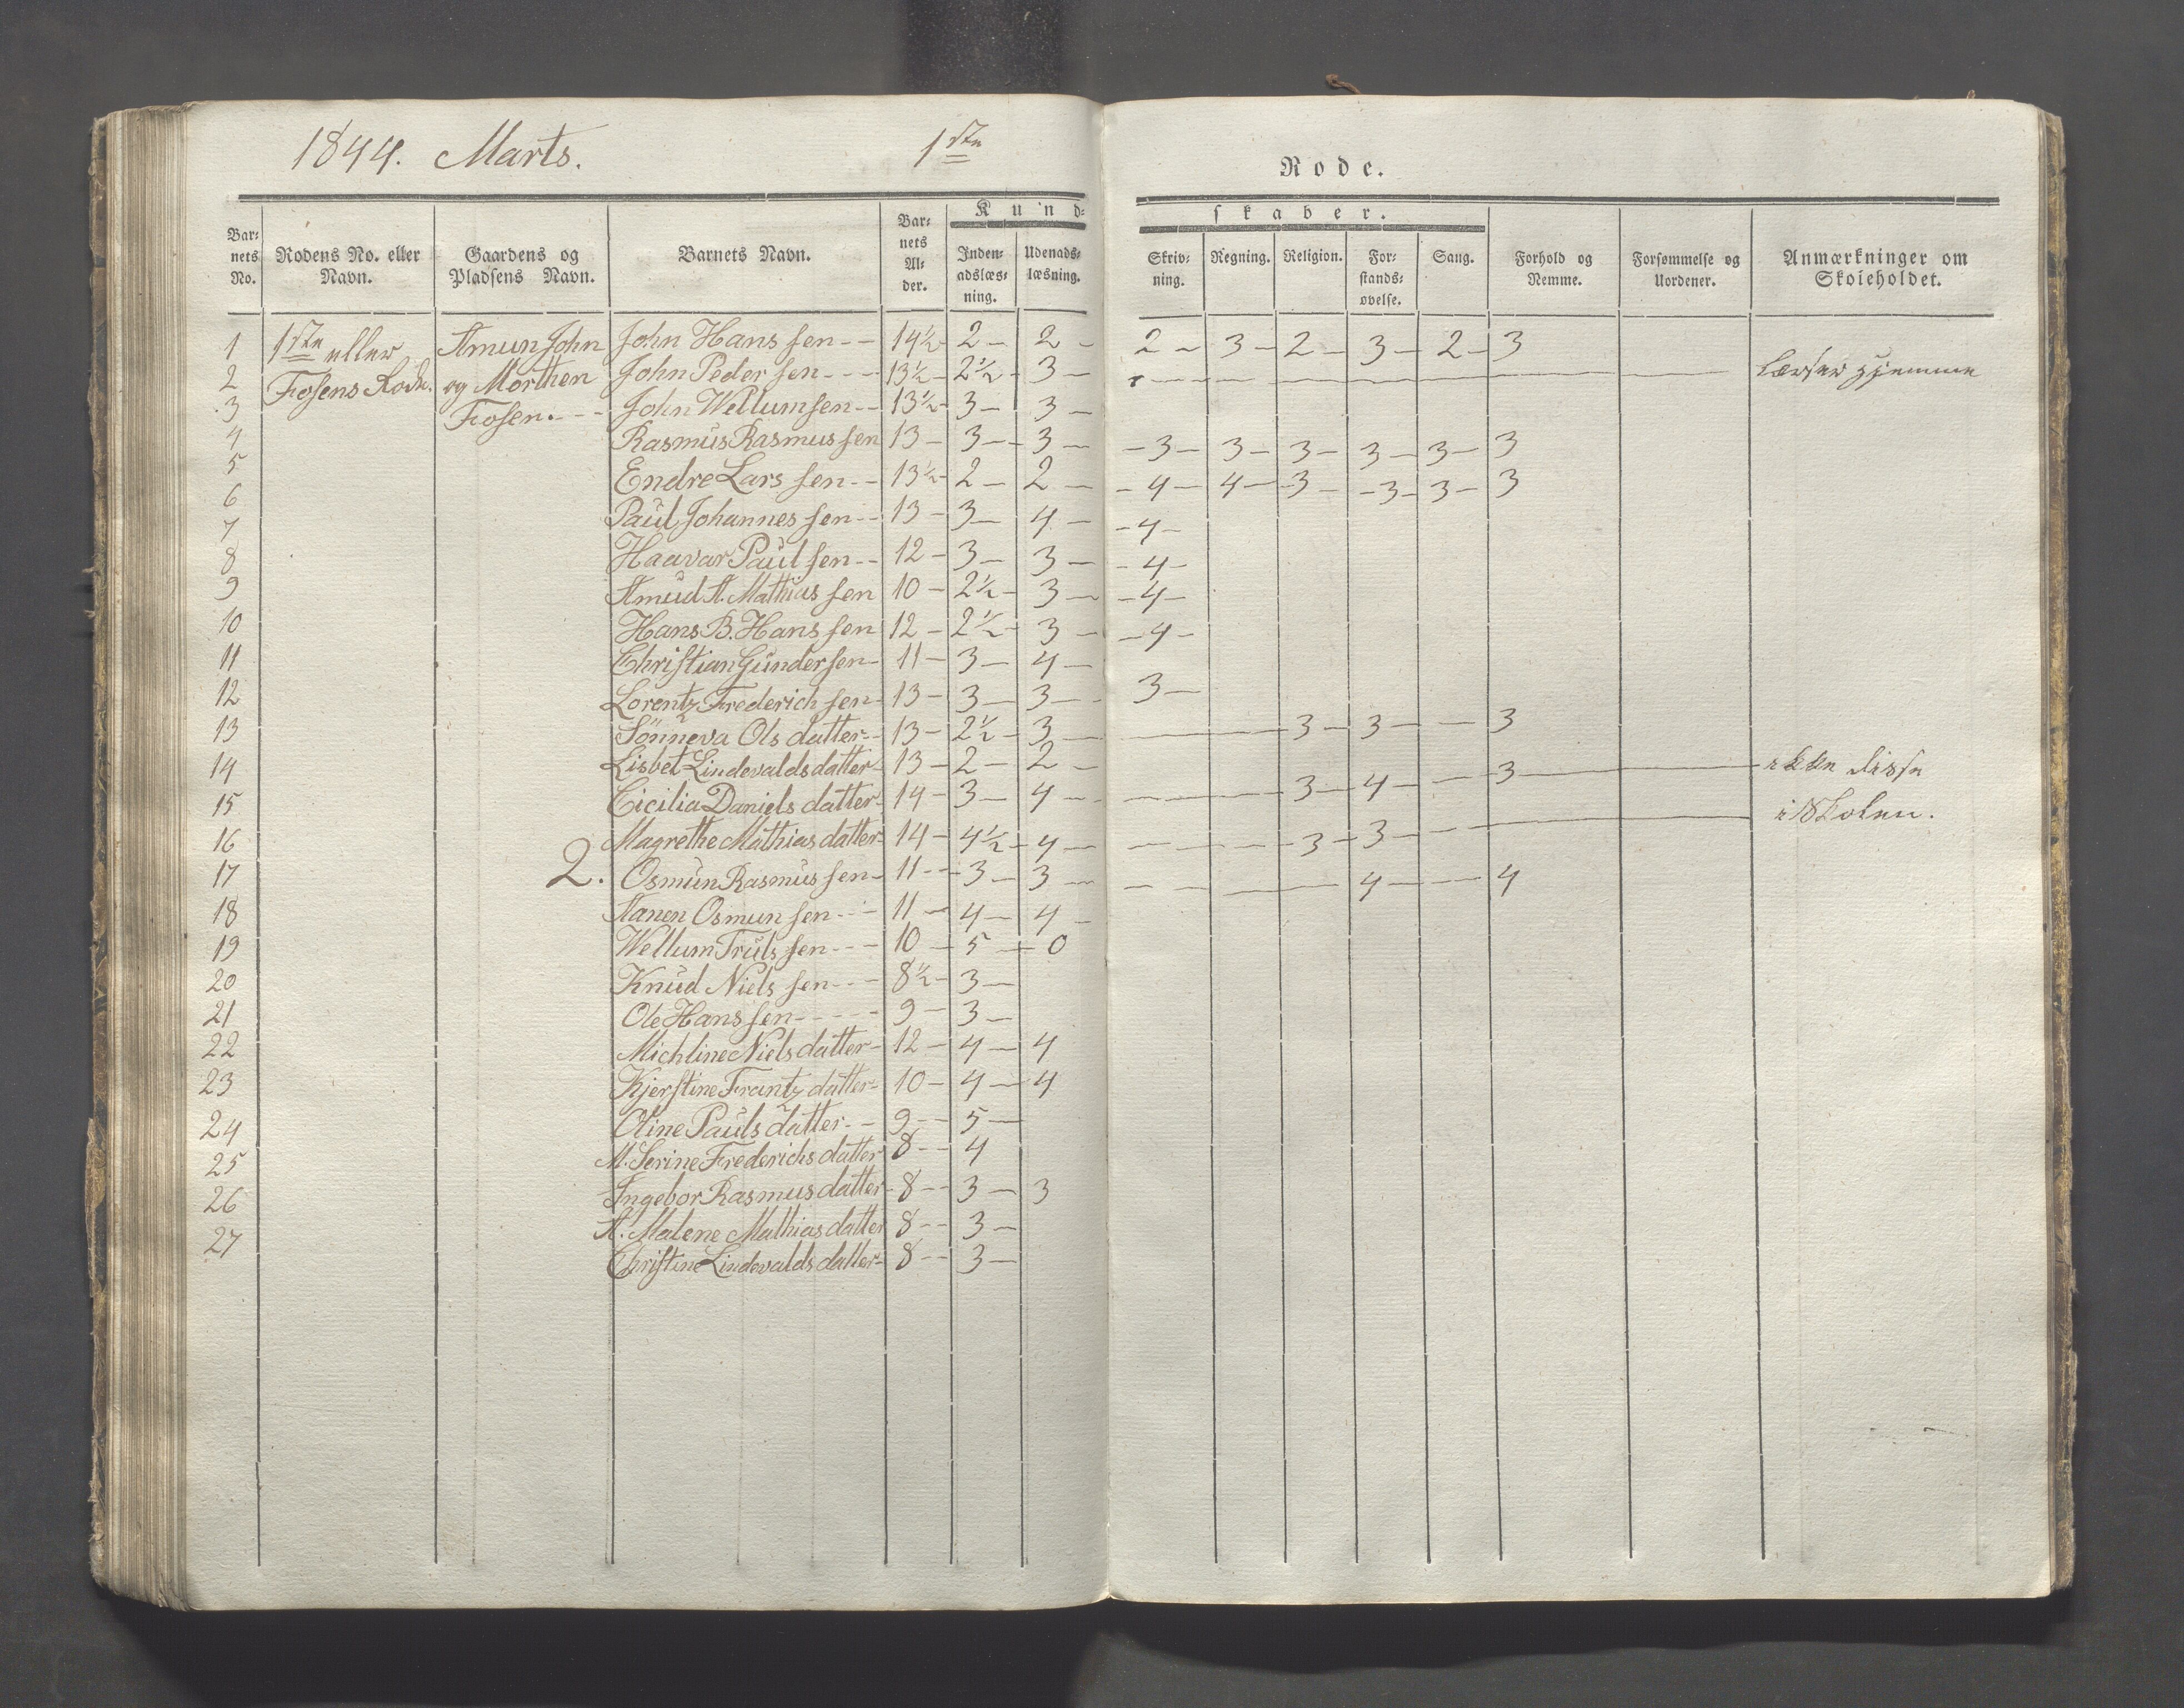 1844. Marts. 1ste Rode.
Kundskaber.
Barnets No. Rodens No. eller Navn. Gaardens og Pladsens Navn. Barnets Navn. Barnets Alder. Indenadslæsning. Udenadslæsning. Skrivning. Regning. Religion. Forstandsøvelse. Sang. Forhold og Nemme. Forsømmelse og Uordener. Anmærkninger om Skoleholdet.
1 1ste eller Amun John John Hanssen -- 14½ 2 - 2 - 2 - 3 - 2 - 3 - 2 - 3
2 Fosens Rode. og Morthen John Pedersen --- 13½ - 2½ - 3 - Læser hjemme
3 Fosen. -- John Wellumsen -- 13½ - 3 - 3 -
4 Rasmus Rasmussen 13 - 3 - 3 - - 3 - 3 - 3 - 3 - 3 - 3
5 Endre Larssen -- 13½ - 2 - 2 - - 4 - 4 - 3 - - 3 - 3 - 3
6 Paul Johannessen -- 13 - 3 - 4 - - 4 -
7 Haavar Paulsen -- 12 - 3 - 3 - - 4 -
8 Amud A. Mathiassen 10 - 2½ - 3 - - 4 -
9 Hans B. Hanssen 12 - 2½ - 3 - - 4 -
10 Christian Gundersen - 11 - 3 - 4 -
11 Lorentz Frederichsen - 13 - 3 - 3 - 3 -
12 Sönneva Olsdatter -- 13 - 2½ - 3 - 3 - 3 - - 3
13 Lisbet Lindevaldsdatter - 13 - 2 - 2 - ikke disse
14 Cicilia Danielsdatter - 14 - 3 - 4 - 3 - 4 - - 3
15 Magrethe Mathiasdatter - 14 - 4½ - 4 - 3 - 3 - i Skolen.
16 2. Osmun Rasmussen - 11 -- 3 - 3 - 4 - - 4
17 Aanen Osmunsen --- 11 - 4 - 4 -
18 Wellum Trulssen --- 10 - 5 - 0
19 Knud Nielssen --- 8½ - 3 -
20 Ole Hanssen ----- 9 - 3 -
21 Michline Nielsdatter - 12 - 4 - 4
22 Kjerstine Frantzdatter - 10 - 4 - 4
23 Oline Paulsdatter -- 9 -- 5 -
24 M. Serine Frederichsdatter 8 -- 4
25 Ingebor Rasmusdatter - 8 -- 3 - 3
26 A. Malene Mathiasdatter 8 -- 3 -
27 Christine Lindevaldsdatter - 8 -- 3 -